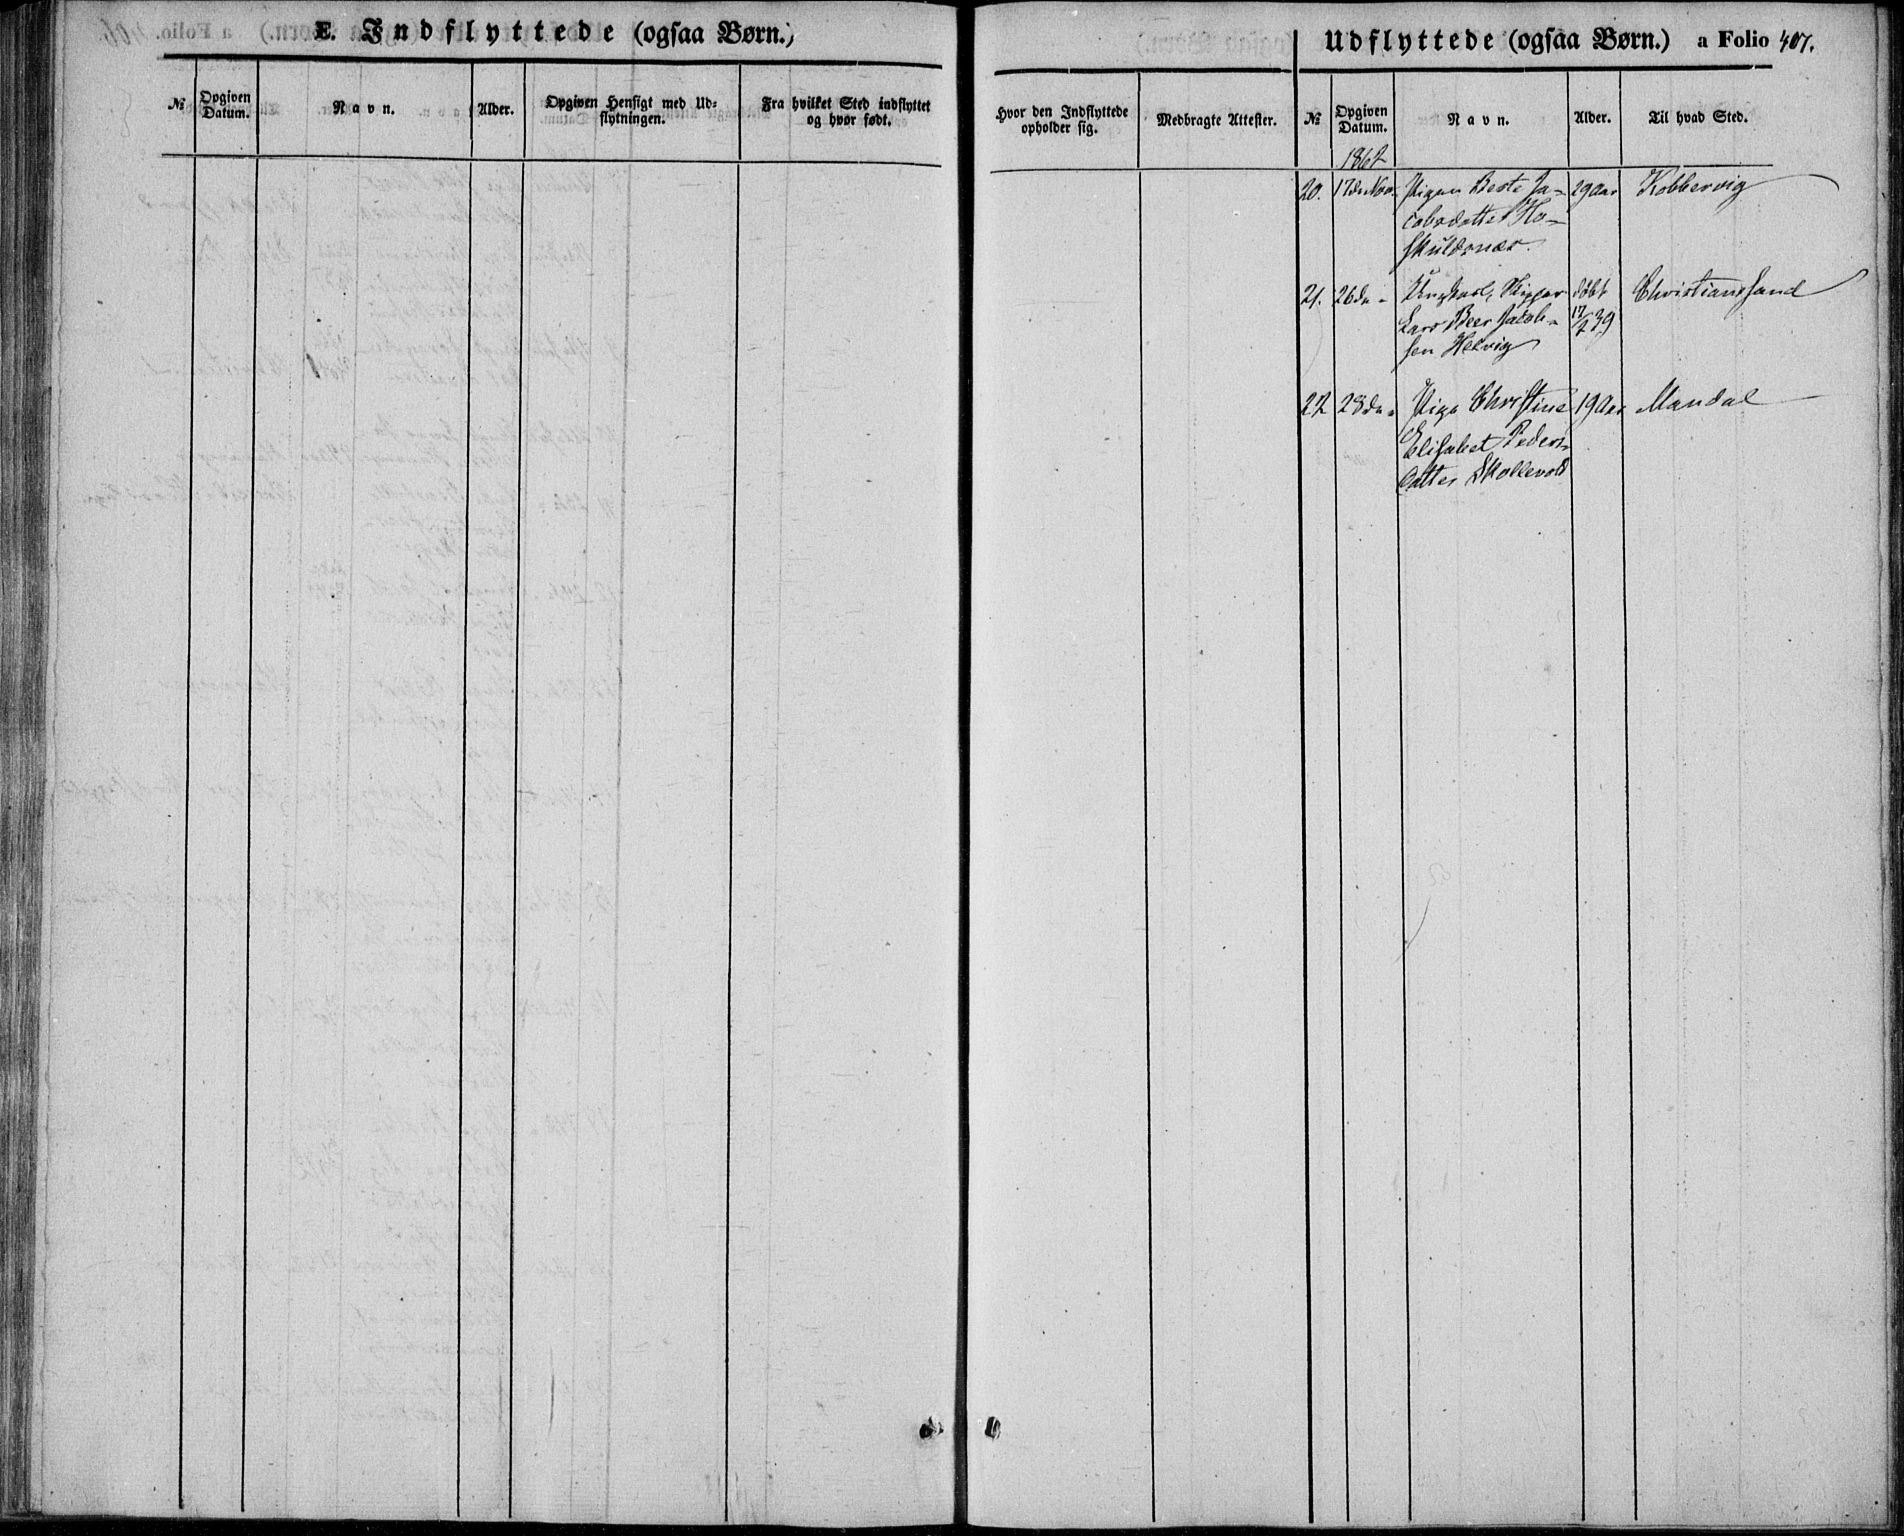 E. Indflyttede (ogsaa Børn.)
№
Opgiven
Datum.
Navn.
Alder.
Opgiven Hensigt med Ud-
flytningen.
Fra hvilket Sted indflyttet
og hvor født.
Udflyttede (ogsaa Børn.) a Folio 407.
Hvor den Indflyttede
opholder sig.
Medbragte Attester.
№
Opgiven
Datum.
Navn.
Alder.
Til hvad Sted.
1862
20. 17de Nov. Pigen Berte Ja-
cobsdatter Ho-
skuldsnæs
29 Aar Kobbervig
21. 26de - Ungkarl, Skipper
Lars Beer Jacob-
sen Helvig
døbt
17/2 39
Christianssand
22 28de - Pige Christine
Elisabet Peders
datter Skollevold
19 Aar Mandal